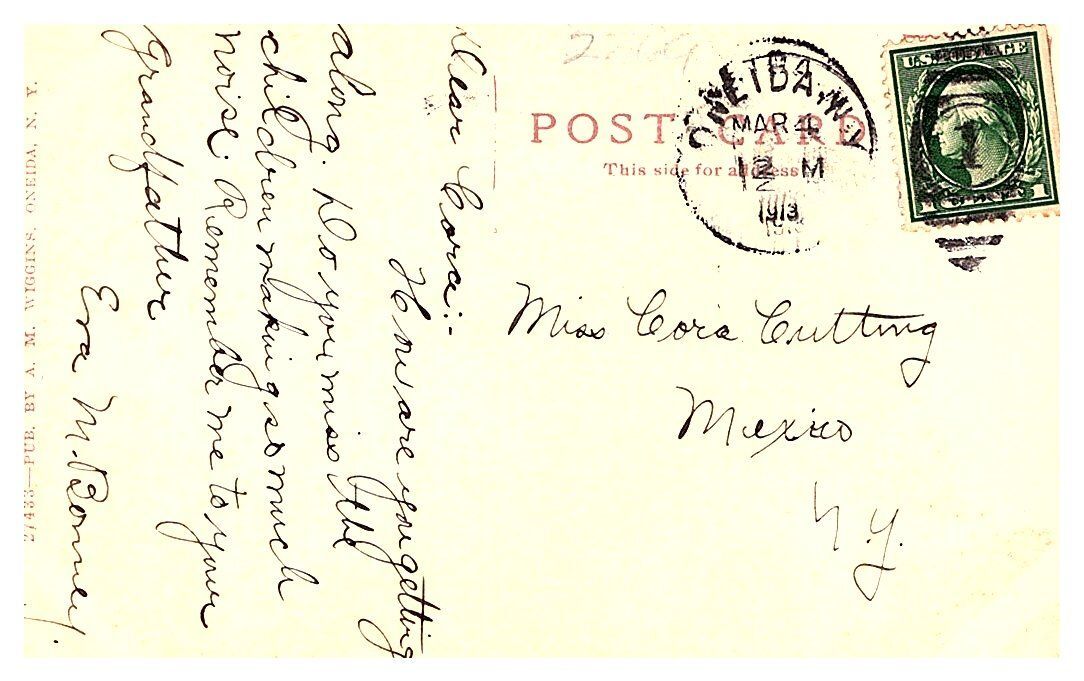 POST CARD
This side for address
ONEIDA, N.Y.
MAR 4
12 M
1913
U.S. POSTAGE
1
1
Miss Cora Cutting
Mexico
N.Y.
Dear Cora:-
How are you getting
along. Do you miss the
children making so much
noise. Remember me to your
Grandfather
Eva M. Bonney.
27433—PUB. BY A. M. WIGGINS, ONEIDA, N. Y.